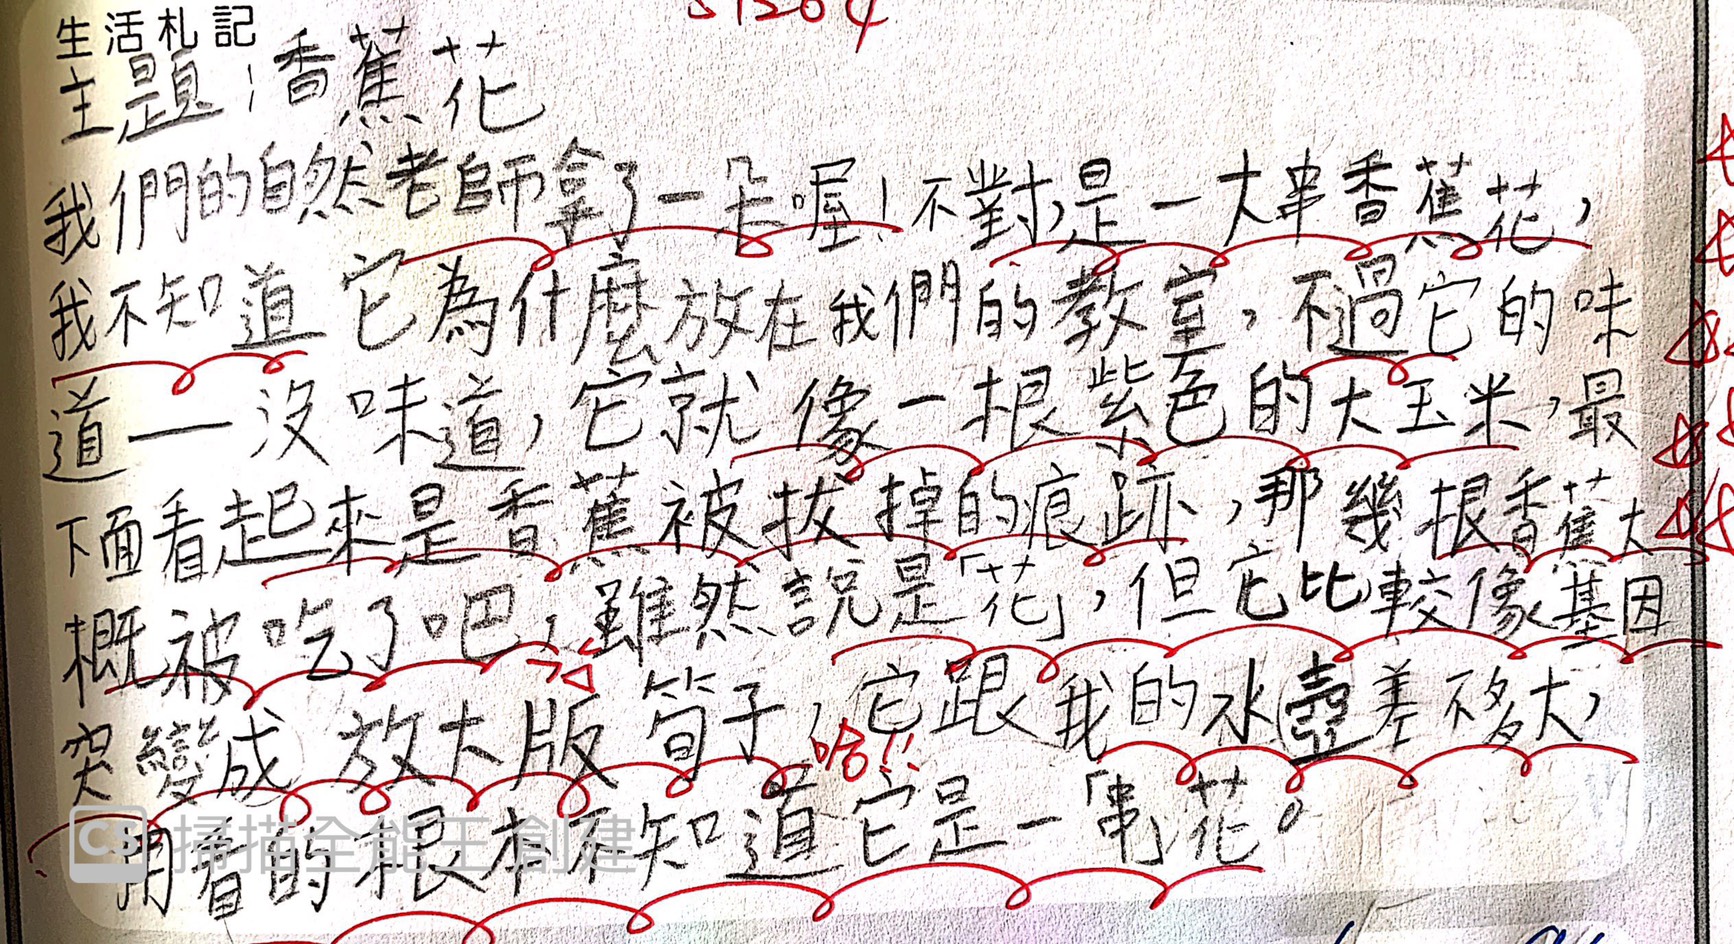 生活札記
主題:香蕉花
我們的自然老師拿了一朵喔!不對,是一大串香蕉花,
我不知道它為什麼放在我們的教室,不過它的味
道——沒味道,它就像一根紫色的大玉米,最
下面看起來是香蕉被拔掉的痕跡,那幾根香蕉大
概被吃了吧,雖然說是「花」,但它比較像基因
突變成放大版筍子,它跟我的水壺差不多大,
哈!!
用看的根本不知道它是一「串」花。
CS 掃描全能王 創建